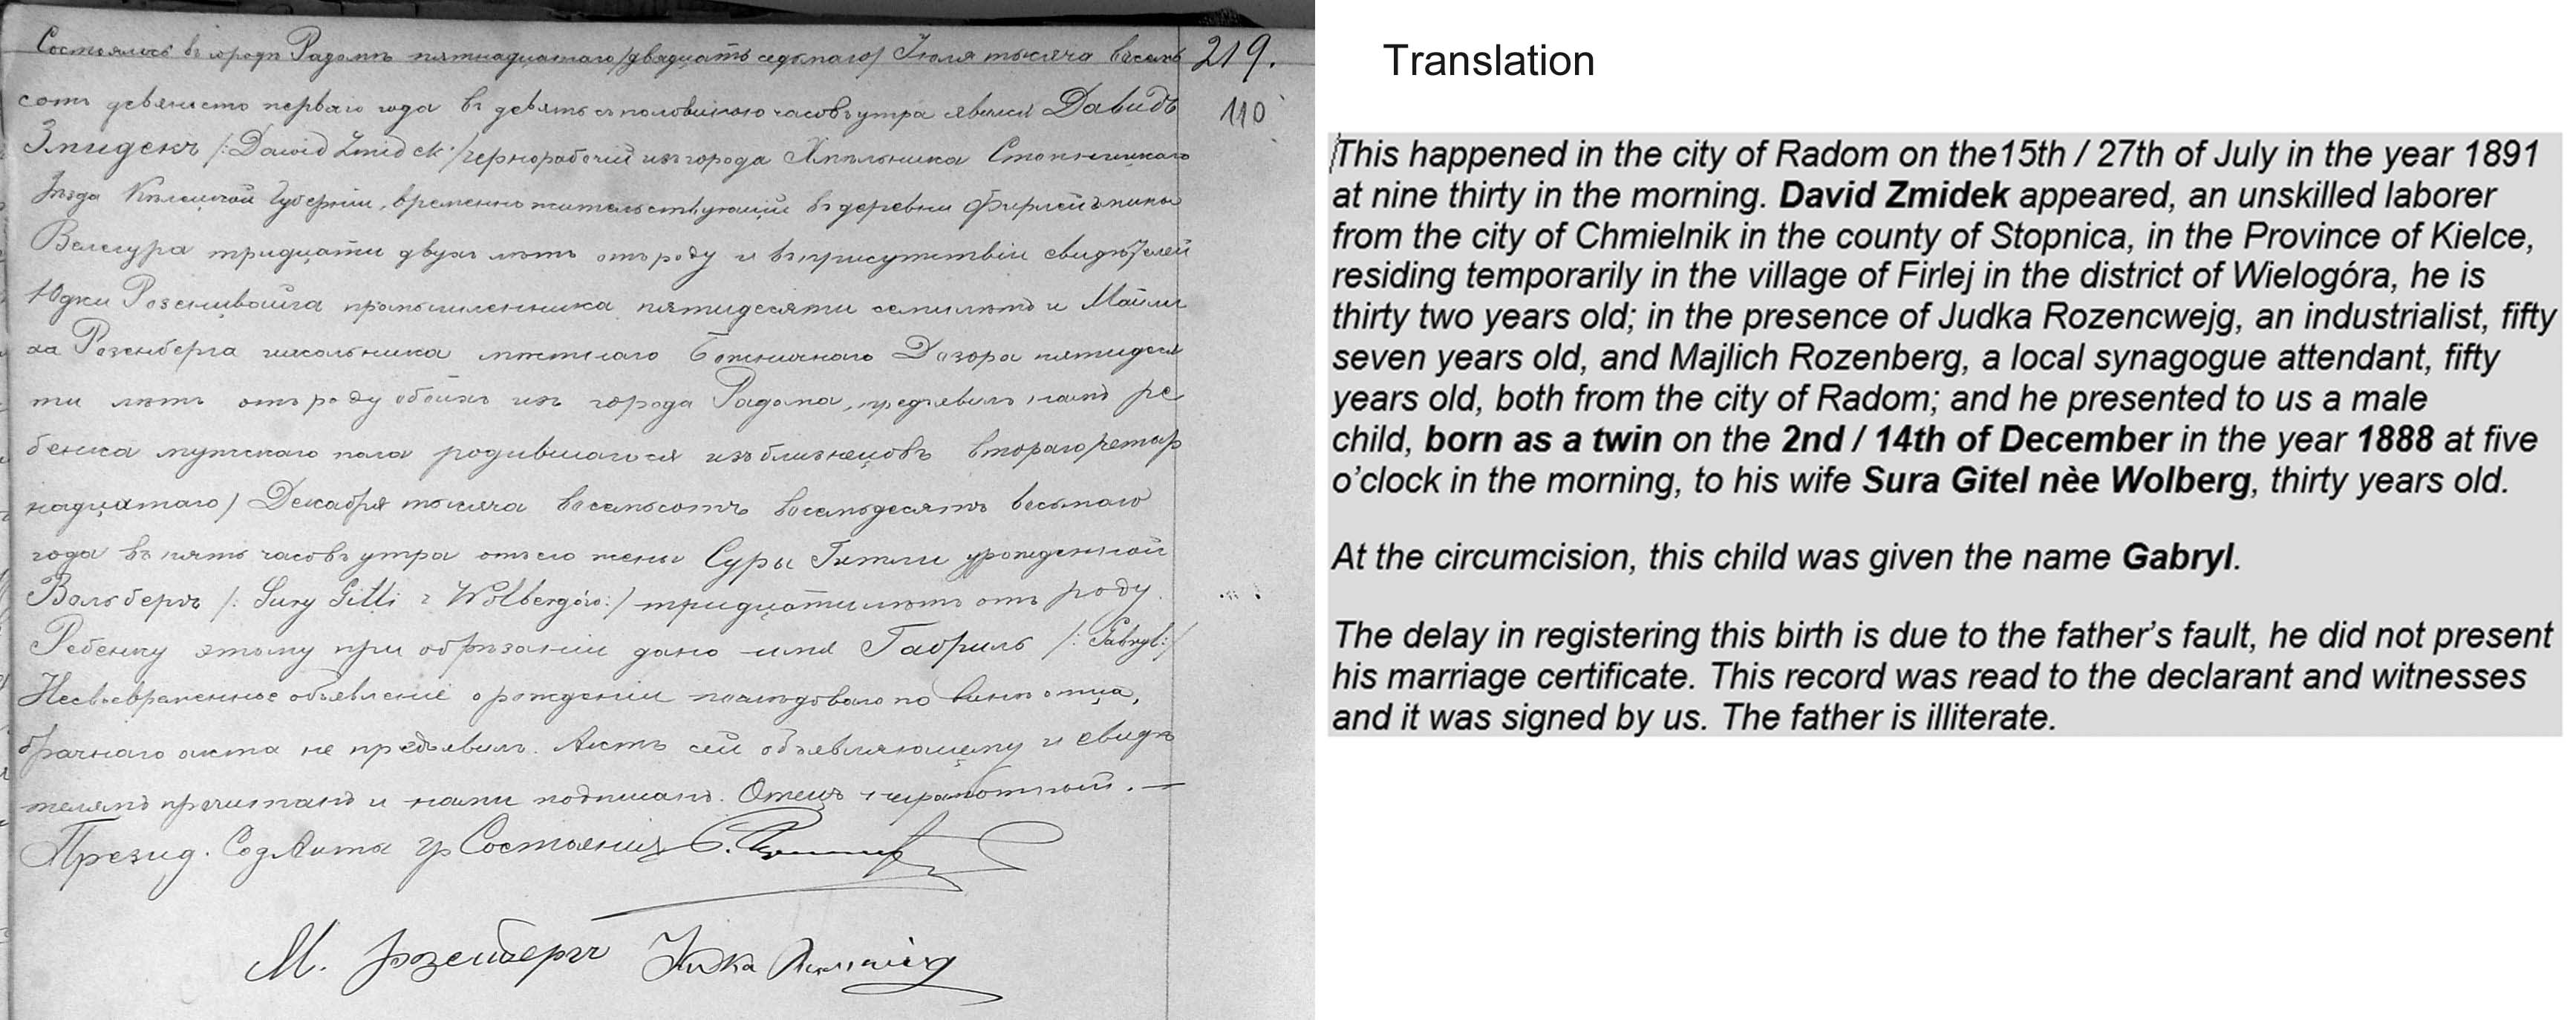 Состоялось въ городѣ Радомѣ пятнадцатаго /двадцать седьмаго/ Іюля тысяча восемь
219.
сотъ девяносто перваго года въ девять съ половиною часовъ утра явился Давидъ
110
Змидекъ /: Dawid Zmidek :/ чернорабочій изъ города Хмѣльника Стопницкаго
Уѣзда Кѣлецкой Губерніи, временно жительствующій въ деревни Фирлей гмины
Велегура тридцати двухъ лѣтъ отъ роду и въ присутствіи свидѣтелей
Юдки Розенцвайга промышленника пятидесяти семи лѣтъ и Майли
ха Розенберга школьника мѣстнаго Божничнаго Дозора пятидеся
ти лѣтъ отъ роду обоихъ изъ города Радома, предъявилъ намъ ре
бенка мужскаго пола родившагося изъ близнецовъ втораго /четыр
надцатаго/ Декабря тысяча восемьсотъ восемьдесятъ восьмаго
года въ пять часовъ утра отъ его жены Суры Гитли урожденной
Вольбергъ /: Sury Gitli z Wolbergów :/ тридцати лѣтъ отъ роду.
Ребенку этому при обрѣзаніи дано имя Габриль /: Gabryl :/
Несвоевременное объявленіе о рожденіи послѣдовало по винѣ отца,
брачнаго акта не предъявилъ. Актъ сей объявляющему и свидѣ
телямъ прочитанъ и нами подписанъ. Отецъ неграмотный. —
Презид. Сод Акта гр Состоянія
М. Розенбергъ Юдка
Translation
This happened in the city of Radom on the15th / 27th of July in the year 1891
at nine thirty in the morning. David Zmidek appeared, an unskilled laborer
from the city of Chmielnik in the county of Stopnica, in the Province of Kielce,
residing temporarily in the village of Firlej in the district of Wielogóra, he is
thirty two years old; in the presence of Judka Rozencwejg, an industrialist, fifty
seven years old, and Majlich Rozenberg, a local synagogue attendant, fifty
years old, both from the city of Radom; and he presented to us a male
child, born as a twin on the 2nd / 14th of December in the year 1888 at five
o’clock in the morning, to his wife Sura Gitel nèe Wolberg, thirty years old.
At the circumcision, this child was given the name Gabryl.
The delay in registering this birth is due to the father’s fault, he did not present
his marriage certificate. This record was read to the declarant and witnesses
and it was signed by us. The father is illiterate.